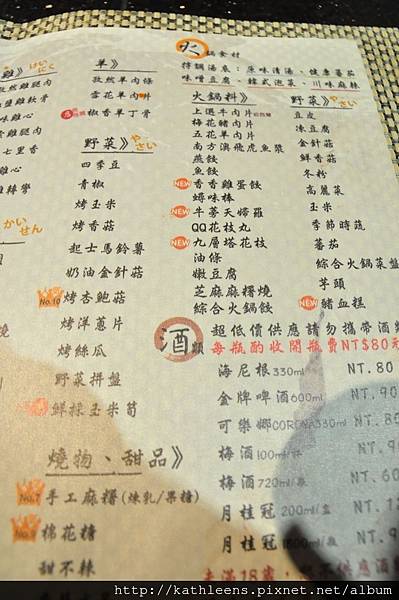 雞》
はいにく
羊》
孜然羊肉條
雪花羊肉串
椒香羊丁骨
野菜》
やさい
四季豆
青椒
烤玉米
烤香菇
起士馬鈴薯
奶油金針菇
No.10 烤杏鮑菇
烤洋蔥片
烤絲瓜
野菜拼盤
鮮採玉米筍
燒物、甜品》
No.7 手工麻糬(煉乳/果糖)
No.9 棉花糖
甜不辣
かいせん
火鍋食材
特調湯底：原味清湯、健康蕃茄
味噌豆腐、韓式泡菜、川味麻辣
火鍋料》
上選牛肉片
梅花豬肉片
五花羊肉片
南方澳飛虎魚漿
燕餃
魚餃
NEW 香香雞蛋餃
蟳味棒
NEW 牛蒡天婦羅
QQ花枝丸
NEW 九層塔花枝
油條
嫩豆腐
芝麻麻糬燒
綜合火鍋餃
野菜》
やさい
豆皮
凍豆腐
金針菇
鮮香菇
冬粉
高麗菜
玉米
季節時蔬
蕃茄
綜合火鍋菜盤
芋頭
NEW 豬血糕
酒類
超低價供應請勿攜帶酒
每瓶酌收開瓶費NT$80
海尼根330ml NT.80
金牌啤酒600ml NT.90
可樂娜CORONA330ml NT.80
梅酒100ml/杯 NT.
梅酒720ml/瓶 NT.60
月桂冠200ml/壺 NT.
月桂冠
未滿18歲，恕不供應酒
http://kathleens.pixnet.net/album